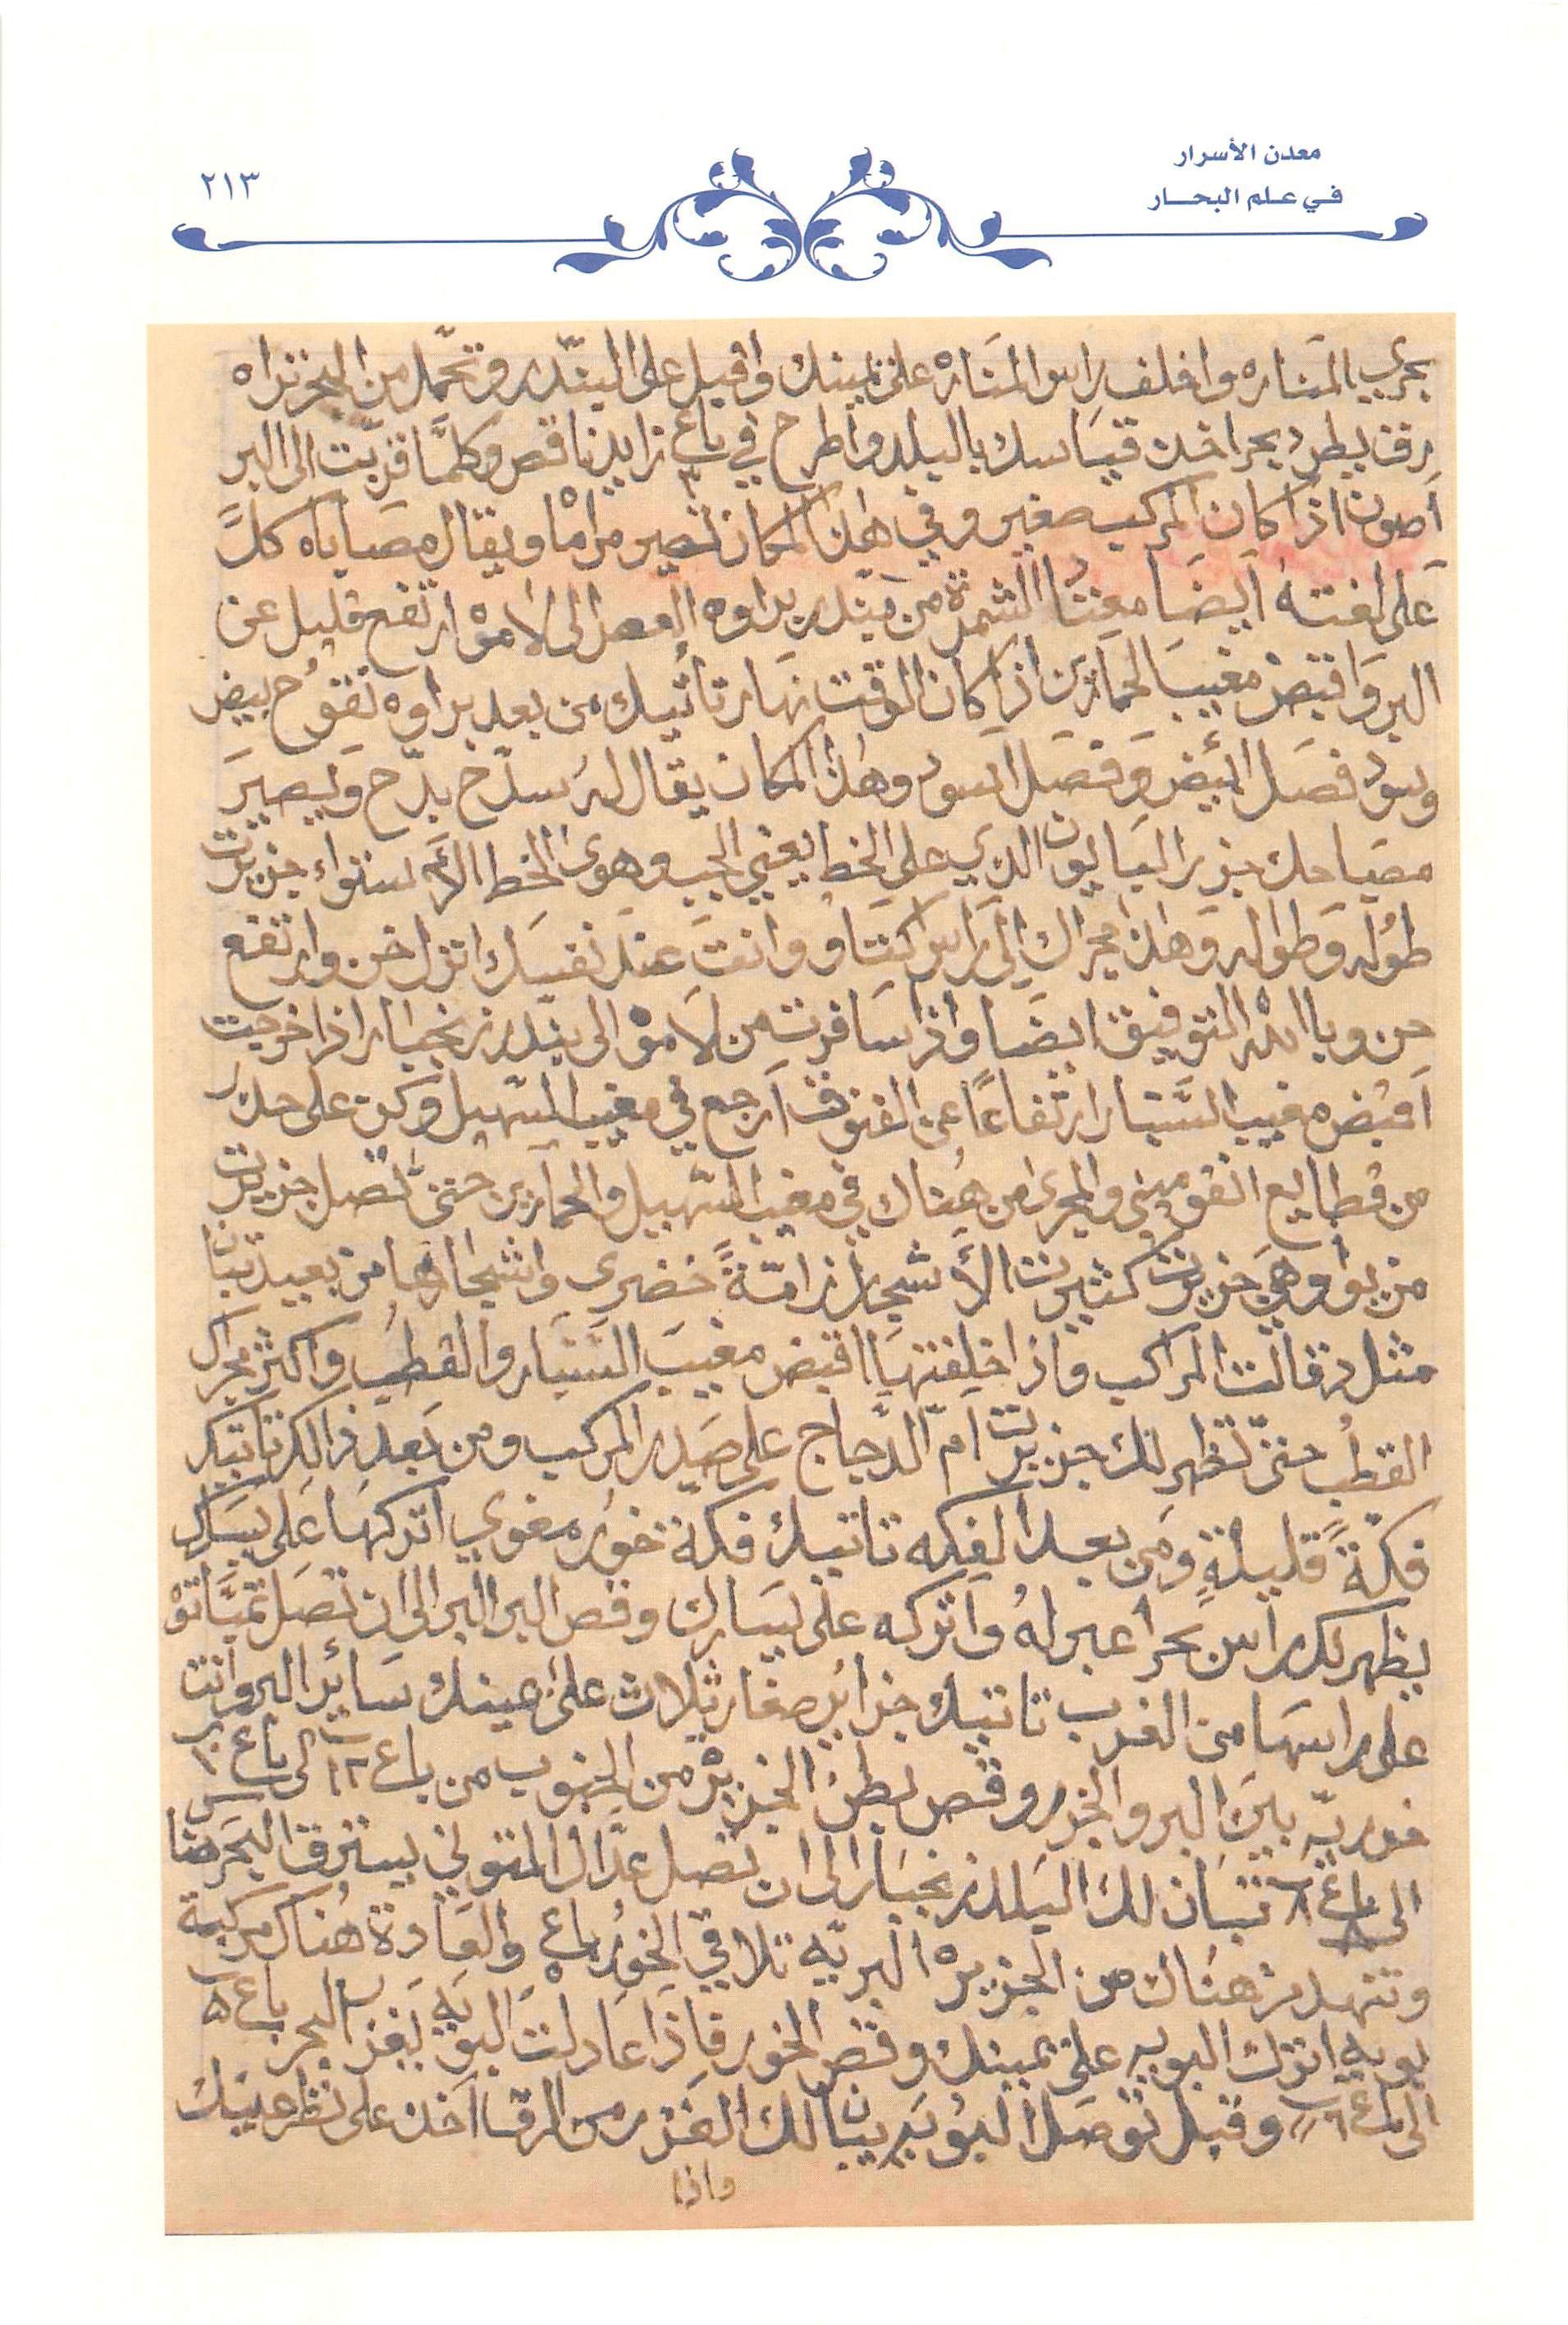 معدن الأسرار
في علم البحار
٢١٣
بحري المناره واغلف راس المناره على يمينك واقبل على البندر وتحمل من البحر تراه
رق بطرد بحر اخذ قياسك بالبلد واطرح في باع ٣ زايد ناقص وكلما قربت الى البر
اصون اذا كان المركب صغير وفي هذا المكان تصير مراما ويقال مصاياه كل
على لغته ايضا معنتا الشمرة من بندر براوه العصر الى لامو ارتفع قليل عن
البر واقبض مغيب الحمارين اذا كان الوقت نهار تاتيك من بعد براوه تقوح بيض
وسود فصل البيض وفصل السود وهذا المكان يقال له سدح بدح ويصير
مصباحك جزير البايون الذي على الخط يعني الجب وهوى الخط الاستواء جزيرت
طوله وطواله وهذا مجراك الى راس كتاو وانت عند نفسك انزل خن وارتفع
حن وبا الله التوفيق ايضا واذا سافرت من لامو الى بندر زنجبار اذا خرجت
اقبض مغيب السنبار ارتفاعا عن الفنوف ارجع في مغيب السهيل وكن على حذر
من قطايع انقوميني والمجرى من هناك في مغيب السهيل والحمارين حتى تصل جزيرت
من يوا وهي جزيرت كثيرت الأشجار زامة خضرى واشجارها من بعيد تبان
مثل دقالت المراكب واذا خلفتها اقبض مغيب السنبار والقطب واكثر مجراك
القطب حتى تظهر لك جزيرت ام الدجاج على صدر المركب ومن بعد ذالك تاتيك
فكة قليلة ومن بعد الفكه تاتيك فكة خور مغوي اتركها على يسارك
يظهر لك راس بحر اعبر له واتركه على يسارك وقص البر البر الى ان تصل تمباتو
على راسها من الغرب تاتيك جزاير صغار ثلاث على عينك ساير البر وانت
خوريه بين البر والجزر وقص بطن الجزيره من الجنوب من باع ١٢ الى باع ١٠
الى باع ٨ تبان لك البلد زنجبار الى ان تصل عدال المتوني يسترق البحر هنا
وتنهد من هناك من الجزيره البريه تلاقي الخور باع ٥ والعادة هناك مركبة
بويه اترك البويه على يمينك وقص الخور فاذا عادلت البويه يغزر البحر باع ٥
الى باع ٦ وقبل توصل البويه يبان لك الغزر من الرق اخذ على نظر عينك
واذا